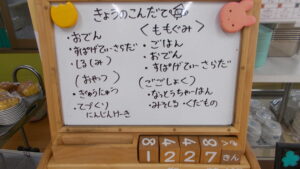 きょうのこんだて
・おでん
・すぱげてぃーさらだ
・しるみ
(おやつ)
・ぎゅうにゅう
・てづくり
にんじんけーき
<ももぐみ>
・ごはん
・おでん
・すぱげてぃーさらだ
(ごごしょく)
・なっとうちゃーはん
・みそしる・くだもの
きん